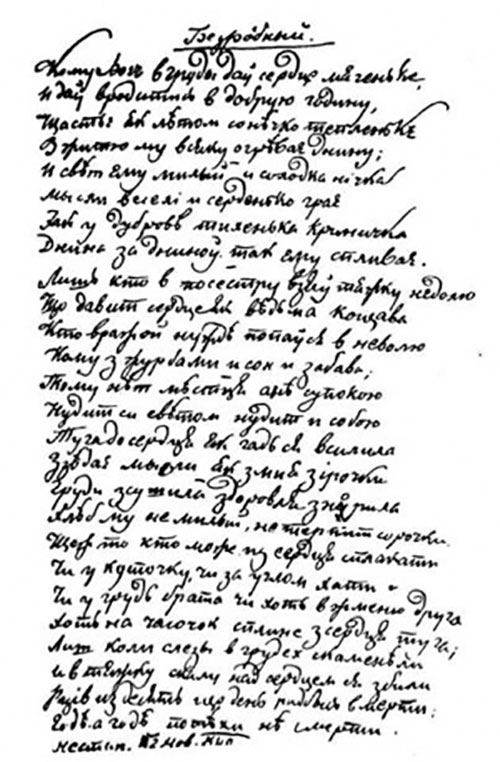 Безрôдный.
Кому Бог в груды дау сердце мягеньке,
и дау вродитись в добрую годину,
Щастье ѣк лѣтом сонѣчко тепленькѣ
Зрить му всяку огрѣвае днину;
И свѣт ему милый и солодка нічка
мысли веселі и серденько грае
Як у дубровѣ тихенька криничка
Днина за дниноў так ему спливае.
Лишь кто в посестру взяў тяжку недолю
Що давит сердце ѣк вѣдьма кощава
Кто вражой нуждѣ попаўся в неволю
Кому з журбами и сон и забава;
Тому нѣт мѣстця анѣ супокою
Нудит си свѣтом нудит и собою
Туга до сердця ѣк гадь ся всилила
Ззѣдае мысли ѣк змий зірочки
груди зсушила здоровля знурила
Хлѣб му не милый, не терпит сорочки.
Щеж то кто може из сердця сплакати
Чи у куточку, чи за углом хати
Чи у грудь брата чи хоть в ... друга
Хоть на часочок сплине з сердця туга;
Лиш коли слезы в грудех скаменѣли
и в тяжку скалу над сердцем ся збили
Раїв из десять ... день ... в смерти:
Годѣ а годѣ потѣхи нѣ смерти.